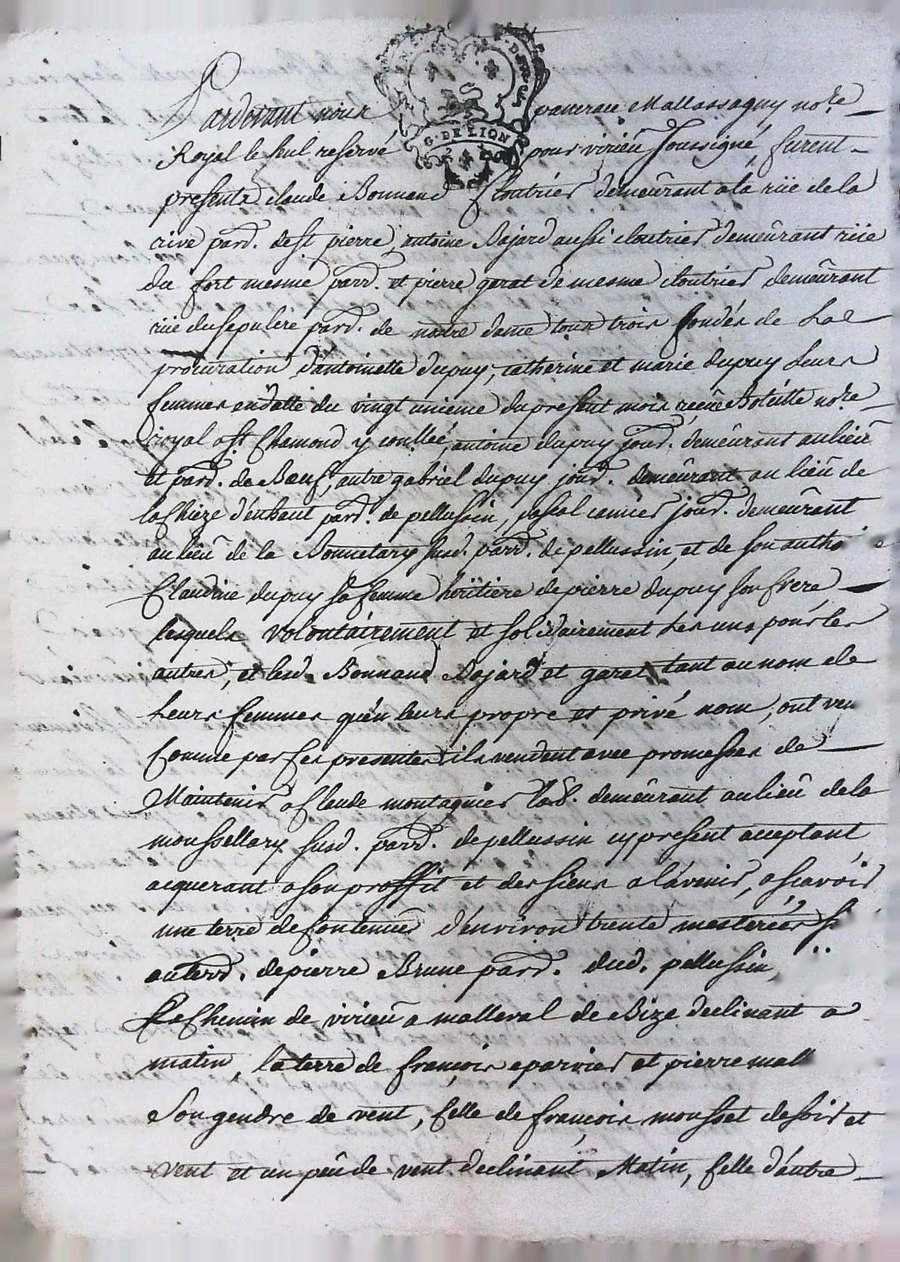 Pardevant nous pancrace Mallassagny no.re
Royal le seul reservé pour virieu soussigné, furent
presents claude Bonnand Cloutrier demeurant a la rüe de la
rive parr. de st pierre, antoine Bajard aussi cloutrier demeurant rüe
du fort mesme parr. et pierre garat de mesme cloutrier demeurant
rüe du sepulcre parr. de notre dame tous trois fondés de la
procuration d'antoinette dupuy, catherine et marie dupuy leurs
femmes en datte du vingt unieme du present mois, reçeue no.re
royal a st. Chamond y conllée, antoine dupuy jour. demeurant au lieu
et parr. de Bœuf, autre gabriel dupuy jour. demeurant au lieu de
la Chieze d'enhaut parr. de pellussin, pascal jour. demeurant
au lieu de la Bonnetary susd. parr. de pellussin, et de son autho
Claudine dupuy sa femme héritiere de pierre dupuy son frere
lesquels volontairement et solidairement les uns pour les
autres, et lesd. Bonnand Bajard et garat tant au nom de
leurs femmes qu'en leurs propre et privé nom, ont ven
comme par ces presentes ils vendent avec promesses de
Maintenir a Claude montagnier lab. demeurant au lieu de la
moussellary susd. parr. de pellussin cy present acceptant
acquerant a son proffit et des siens a l'avenir, a scavoir
une terre de contenue d'environ trente mesterées
au terr. de pierre Brune parr. dud. pellussin,
Le Chemin de virieu a malleval de Bize declinant a
matin, la terre de françois epervier et pierre mall
son gendre de vent, celle de françois mousset de soir et
vent et un peu de vent declinant Matin, celle d'autre
G. DE LION